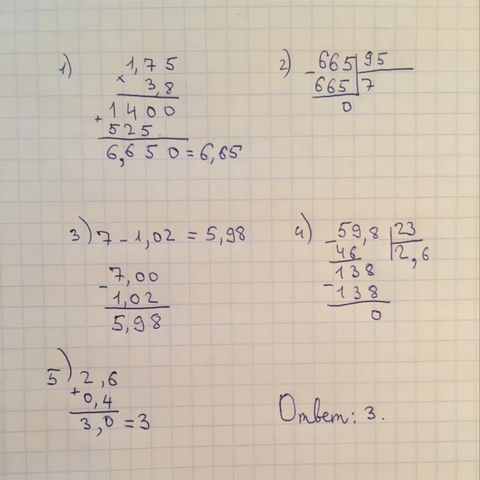 1) 1,75
× 3,8
1400
+ 525
6,650 = 6,65
2) - 665 | 95
665 | 7
0
3) 7 - 1,02 = 5,98
- 7,00
1,02
5,98
4) - 59,8 | 23
46 | 2,6
138
- 138
0
5) 2,6
+ 0,4
3,0 = 3
Ответ: 3.